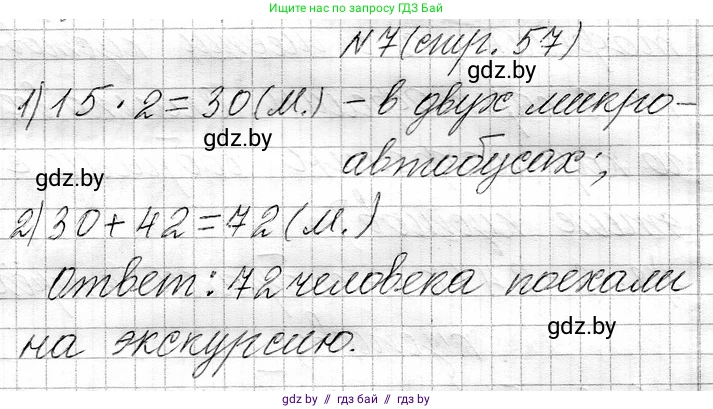 Ищите нас по запросу ГДЗ Бай
№7(стр. 57)
gdz.by
1) 15 · 2 = 30 (м.) – в двух микро-
gdz.by
автобусах;
gdz.by
2) 30 + 42 = 72 (м.)
Ответ: 72 человека поехали
gdz.by
на экскурсию.
gdz.by // гдз бай // gdz.by